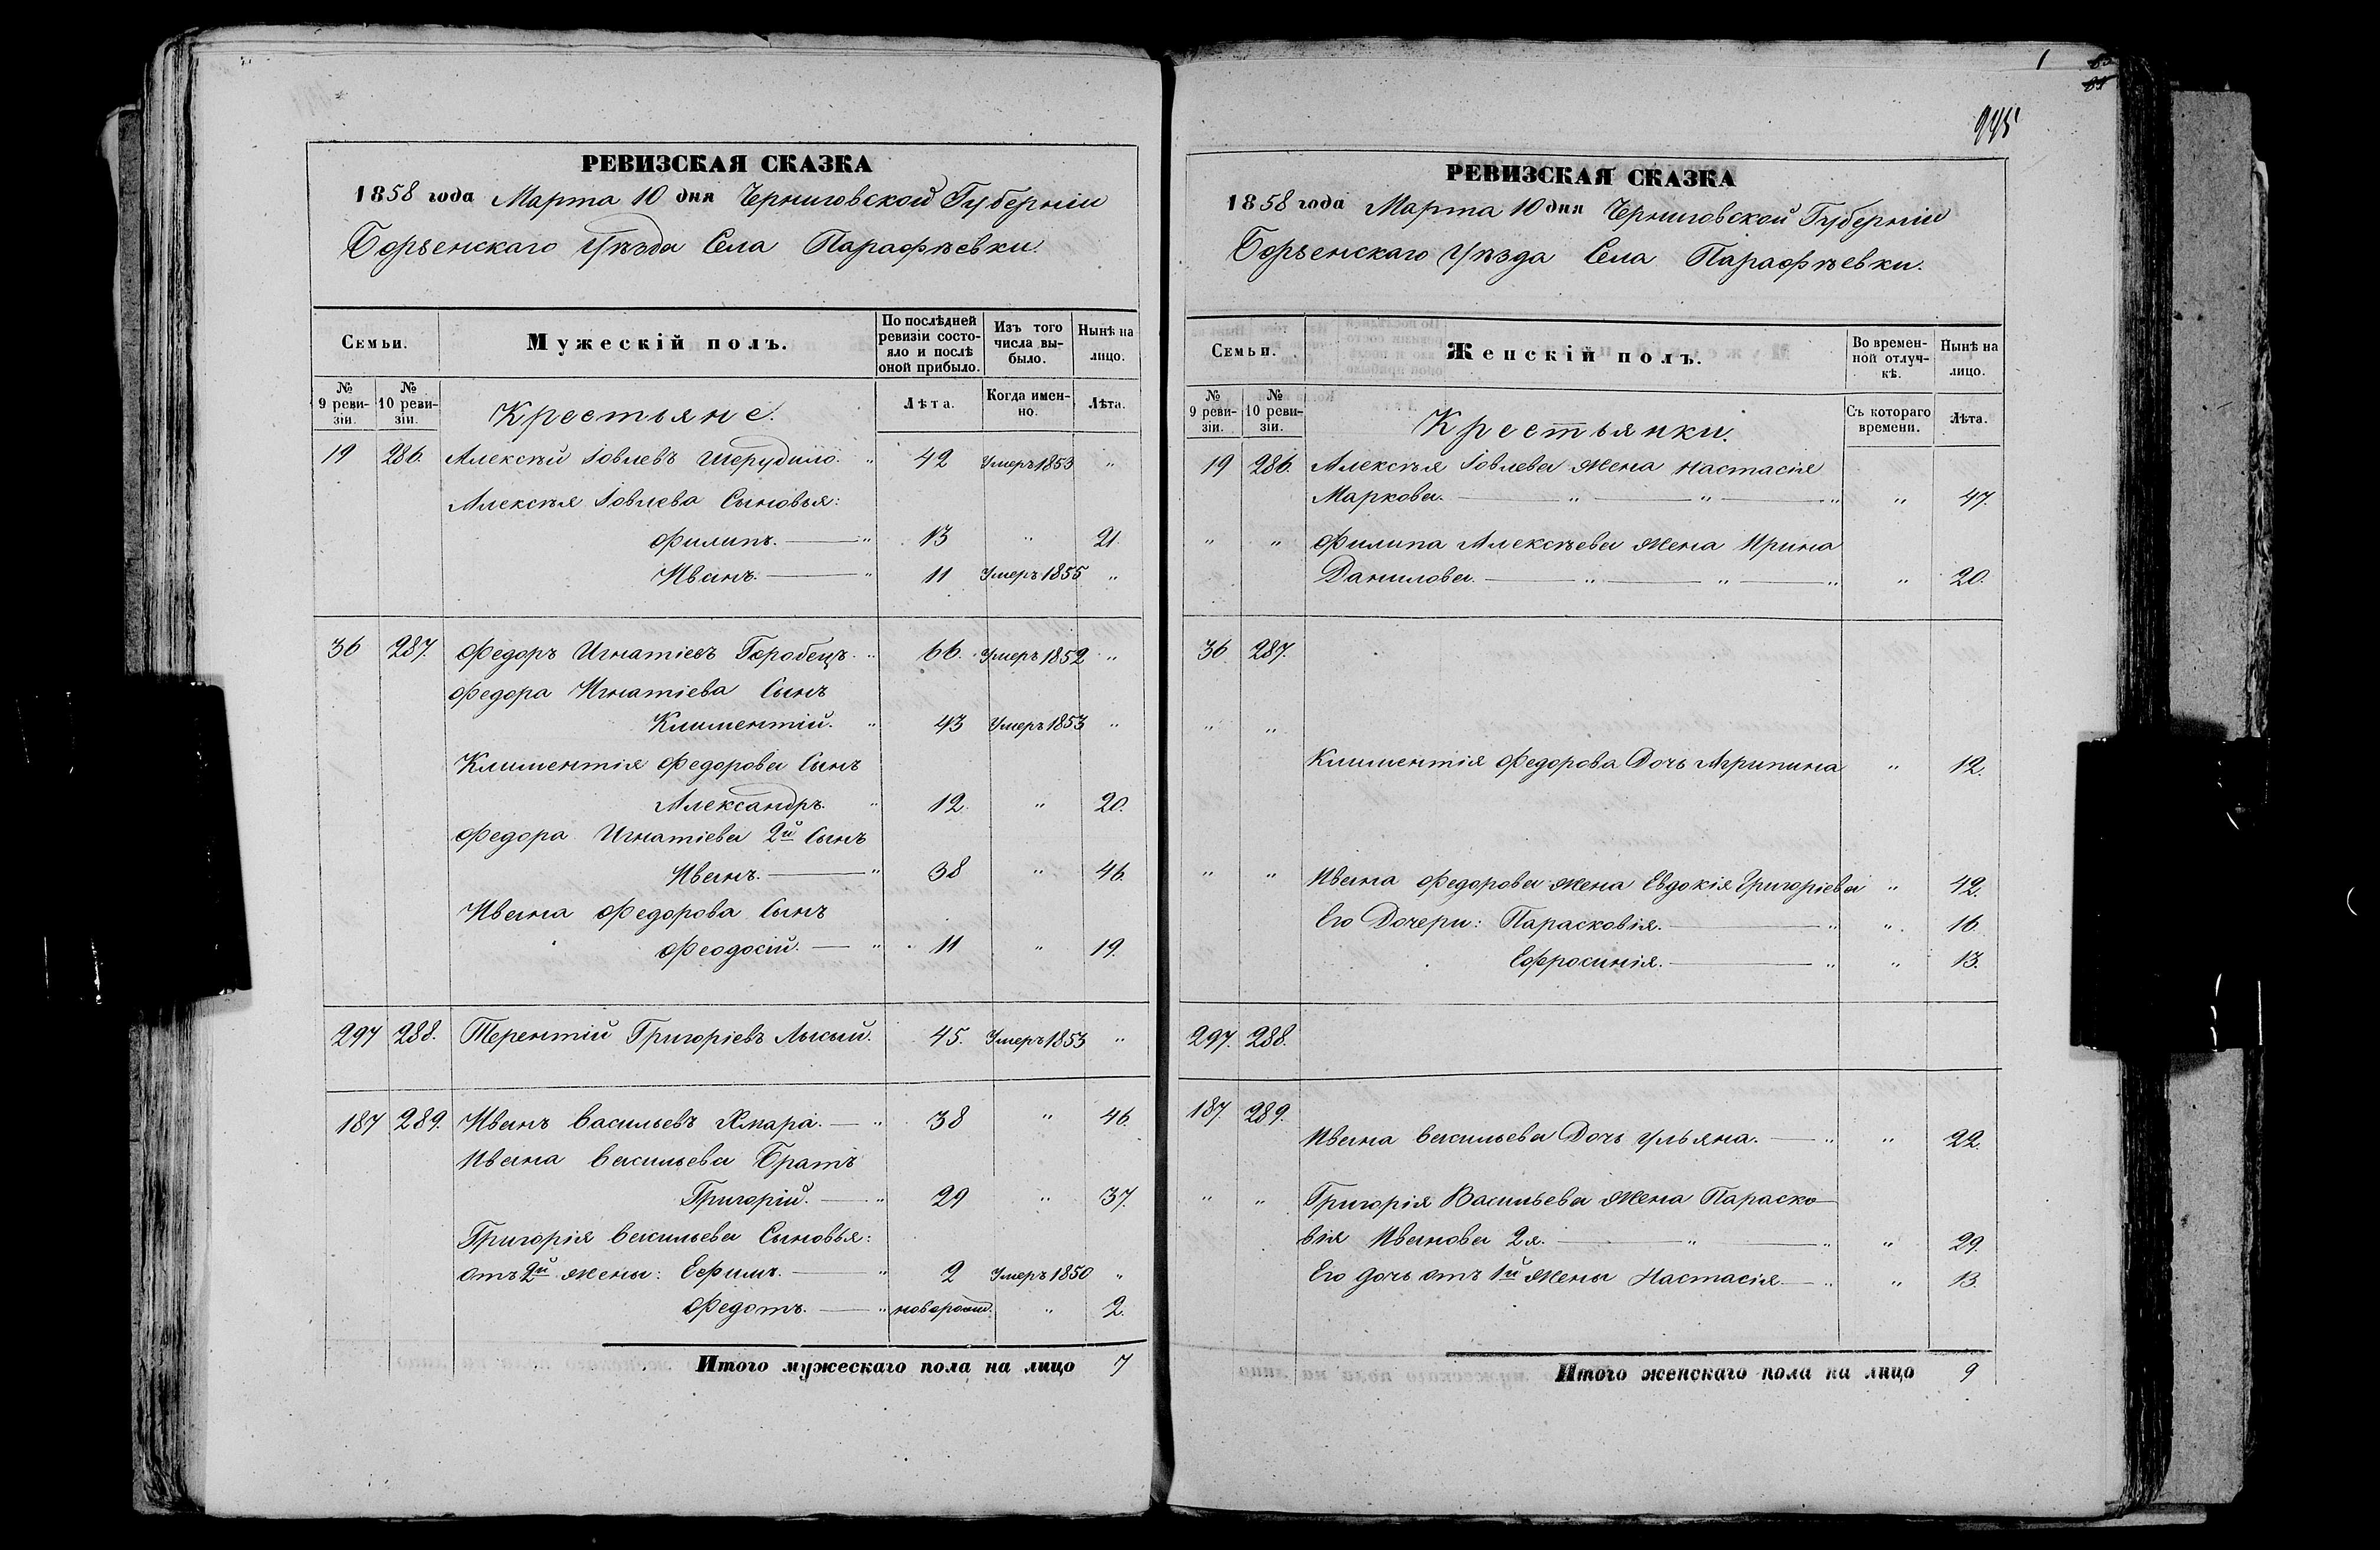 РЕВИЗСКАЯ СКАЗКА
1858 года Марта 10 дня Черниговской Губерніи
Борзенскаго Уѣзда Села Парафѣевки.
Семьи.
Мужескій полъ.
По послѣдней ревизіи состояло и послѣ оной прибыло.
Изъ того числа выбыло.
Нынѣ на лицо.
№ 9 ревизіи.
№ 10 ревизіи.
Крестьяне.
Лѣта.
Когда именно.
Лѣта.
19 286. Алексѣй Іовлевъ Шерудило. " 42 Умеръ 1853 "
Алексѣя Іовлева Сыновья:
Филипъ. — " 13 " 21.
Иванъ. — " 11 Умеръ 1855 "
36 287. Федоръ Игнатіевъ Горобецъ. " 66. Умеръ 1852 "
Федора Игнатіева Сынъ
Климентій. " 43 Умеръ 1853 "
Климентія Федорова Сынъ
Александръ. " 12 " 20.
Федора Игнатіева 2й Сынъ
Иванъ. — " 38 " 46.
Ивана Федорова Сынъ
Феодосій. — " 11 " 19.
297 288. Терентій Григоріевъ Лысый. 45. Умеръ 1853 "
187 289. Иванъ Васильевъ Хмара. — " 38 " 46
Ивана Васильева Братъ
Григорій. — " 29 " 37.
Григорія Васильева Сыновья:
отъ 2й жены: Ефимъ. — " 2 Умеръ 1850 "
Федотъ. — " новорожд. " 2.
Итого мужескаго пола на лицо 7
1
945
РЕВИЗСКАЯ СКАЗКА
1858 года Марта 10 дня Черниговской Губерніи
Борзенскаго Уѣзда Села Парафѣевки.
Семьи.
Женскій полъ.
Во временной отлучкѣ.
Нынѣ на лицо.
№ 9 ревизіи.
№ 10 ревизіи.
Крестьянки.
Съ котораго времени.
Лѣта.
19 286. Алексѣя Іовлева жена Настасія
Маркова. — " — " — " " 47.
" " Филипа Алексѣева жена Ирина
Данилова. — " — " — " " 20.
36 287.
" "
Климентія Федорова Дочь Агрипина " 12.
" " Ивана Федорова жена Евдокія Григоріева " 42.
Его Дочери: Парасковія. — " " 16.
Ефросинія. — " " 13.
297. 288.
187. 289.
Ивана Васильева Дочь Ульяна. — " " 22.
" " Григорія Васильева жена Параско-
вія Иванова 2я. — " — " " 29.
Его дочь отъ 1й жены Настасія — " " 13.
Итого женскаго пола на лицо 9